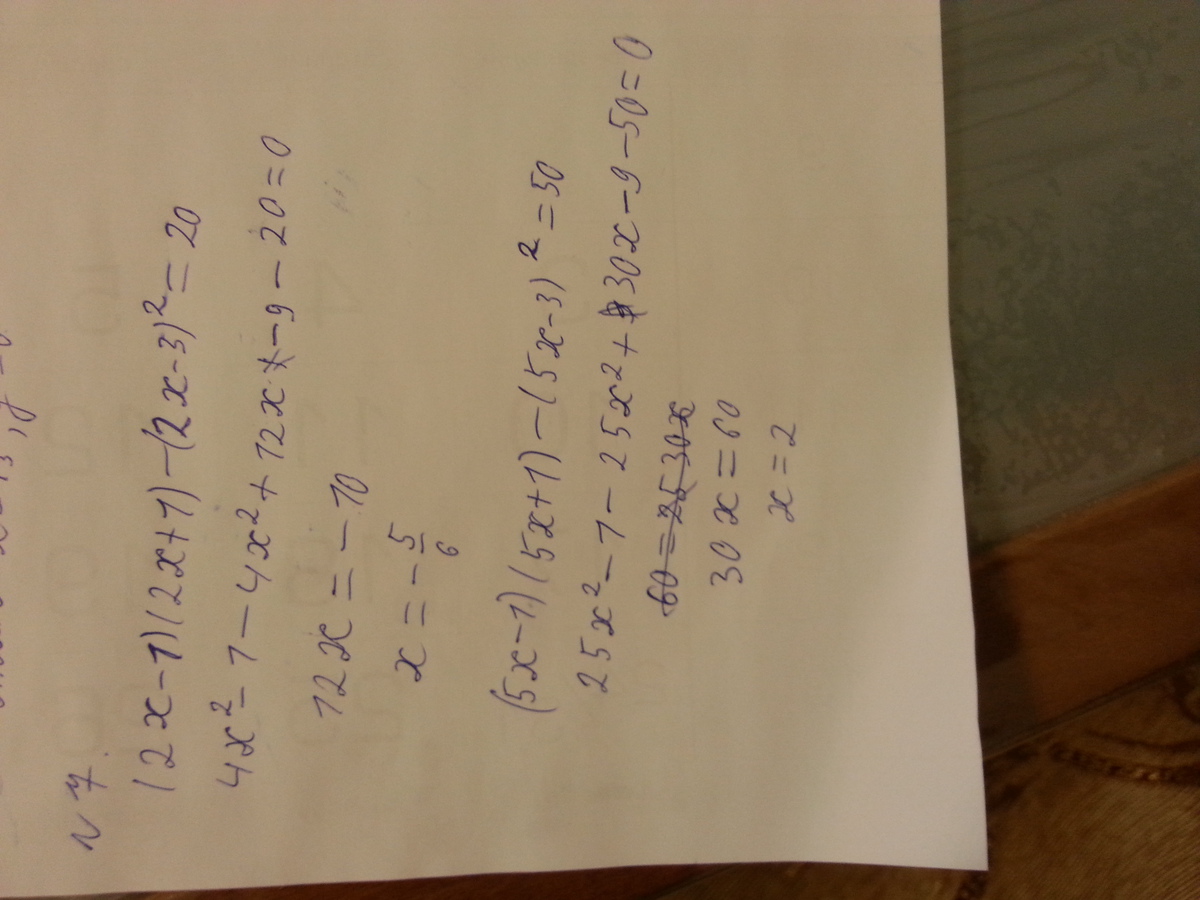 N 7.
(2x-1)(2x+1)-(2x-3)²=20
4x²-1-4x²+12x-9-20=0
12x=-10
x=-5/6
(5x-1)(5x+1)-(5x-3)²=50
25x²-1-25x²+30x-9-50=0
60=25 30x
30x=60
x=2